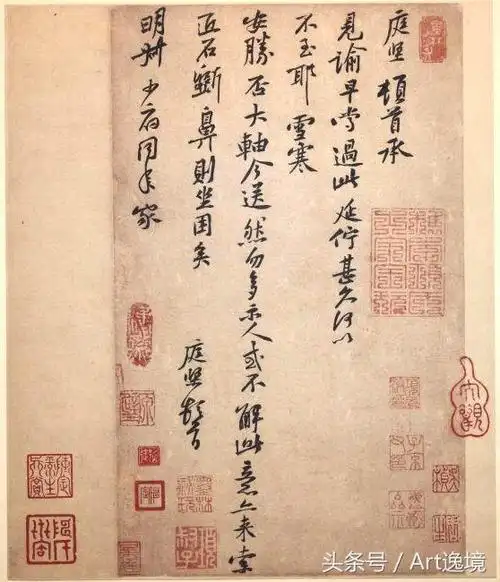 庭堅頓首承
見諭早嘗過此延佇甚久何以
不至耶 雪寒
安勝否大軸今送然勿多示人或不解此意亦來索
匠石斲鼻則坐困矣
庭堅頓首
明叔少府同年家
头条号 / Art逸境